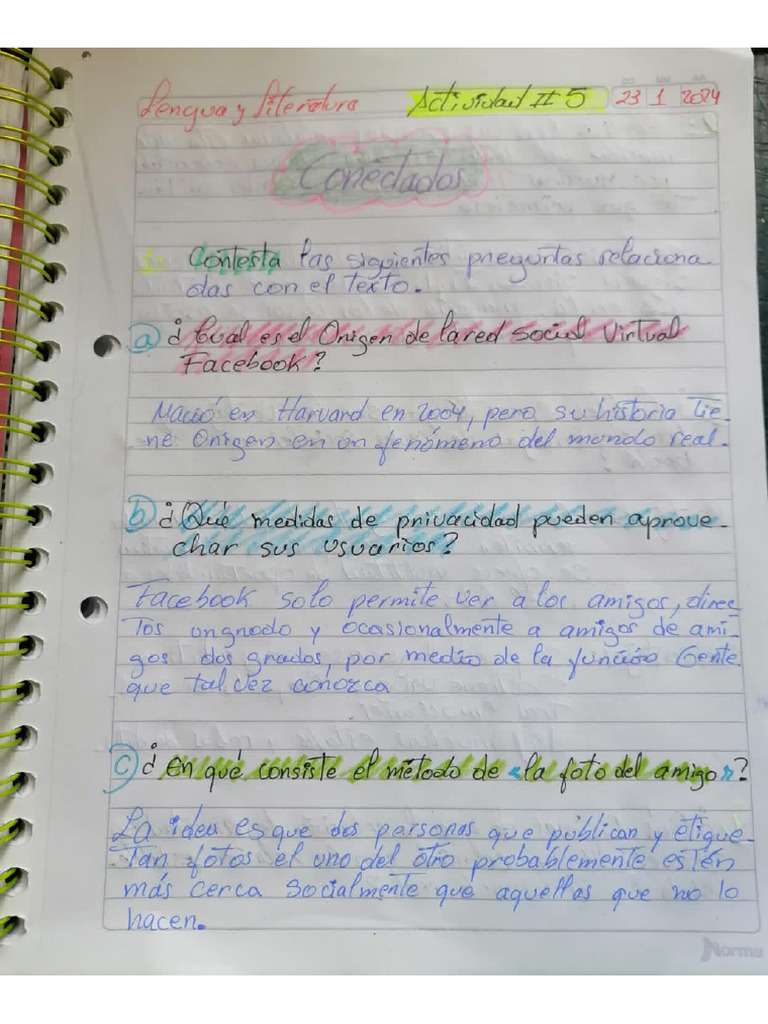 Lengua y Literatura Actividad # 5 23 1 2024
Conectados
1. Contesta las siguientes preguntas relaciona
das con el texto.
a) ¿Cual es el Origen de la red social virtual
Facebook?
Nació en Harvard en 2004, pero su historia tie-
ne Origen en un fenómeno del mundo real.
b) ¿Qué medidas de privacidad pueden aprove-
char sus usuarios?
Facebook solo permite ver a los amigos, direc-
tos ungrado y ocasionalmente a amigos de ami-
gos dos grados, por medio de la función Gente
que tal vez conozca
c) ¿En qué consiste el método de «la foto del amigo»?
La idea es que dos personas que publican y etique-
tan fotos el uno del otro probablemente estén
más cerca socialmente que aquellas que no lo
hacen.
Norma